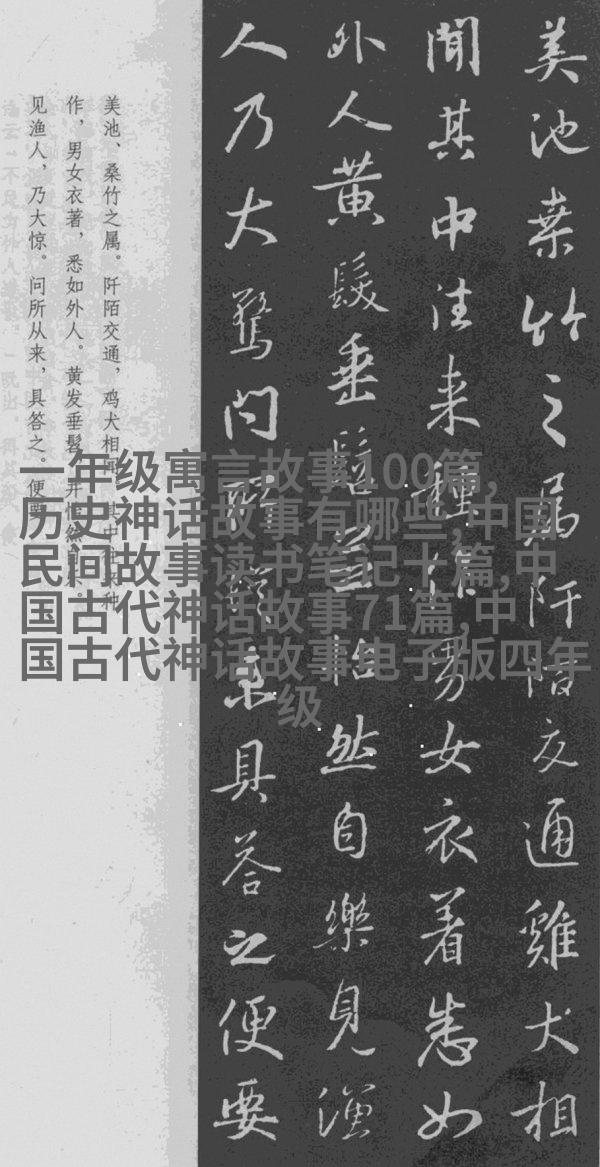 美池桒竹之属阡陌交通雞犬相
聞其中往来種作男女衣着悉如
外人黄髮垂髫並怡然自樂見漁
人乃大驚問所從来具答之便要
美池、桑竹之属。阡陌交通，鸡犬相闻。其中往来种
作，男女衣著，悉如外人。黄发垂髫，并怡然自乐。
见渔人，乃大惊。问所从来，具答之。便要
一年级寓言故事100篇,
历史神话故事有哪些,中国
民间故事读书笔记十篇,中
国古代神话故事71篇,中
国古代神话故事电子版四年
级